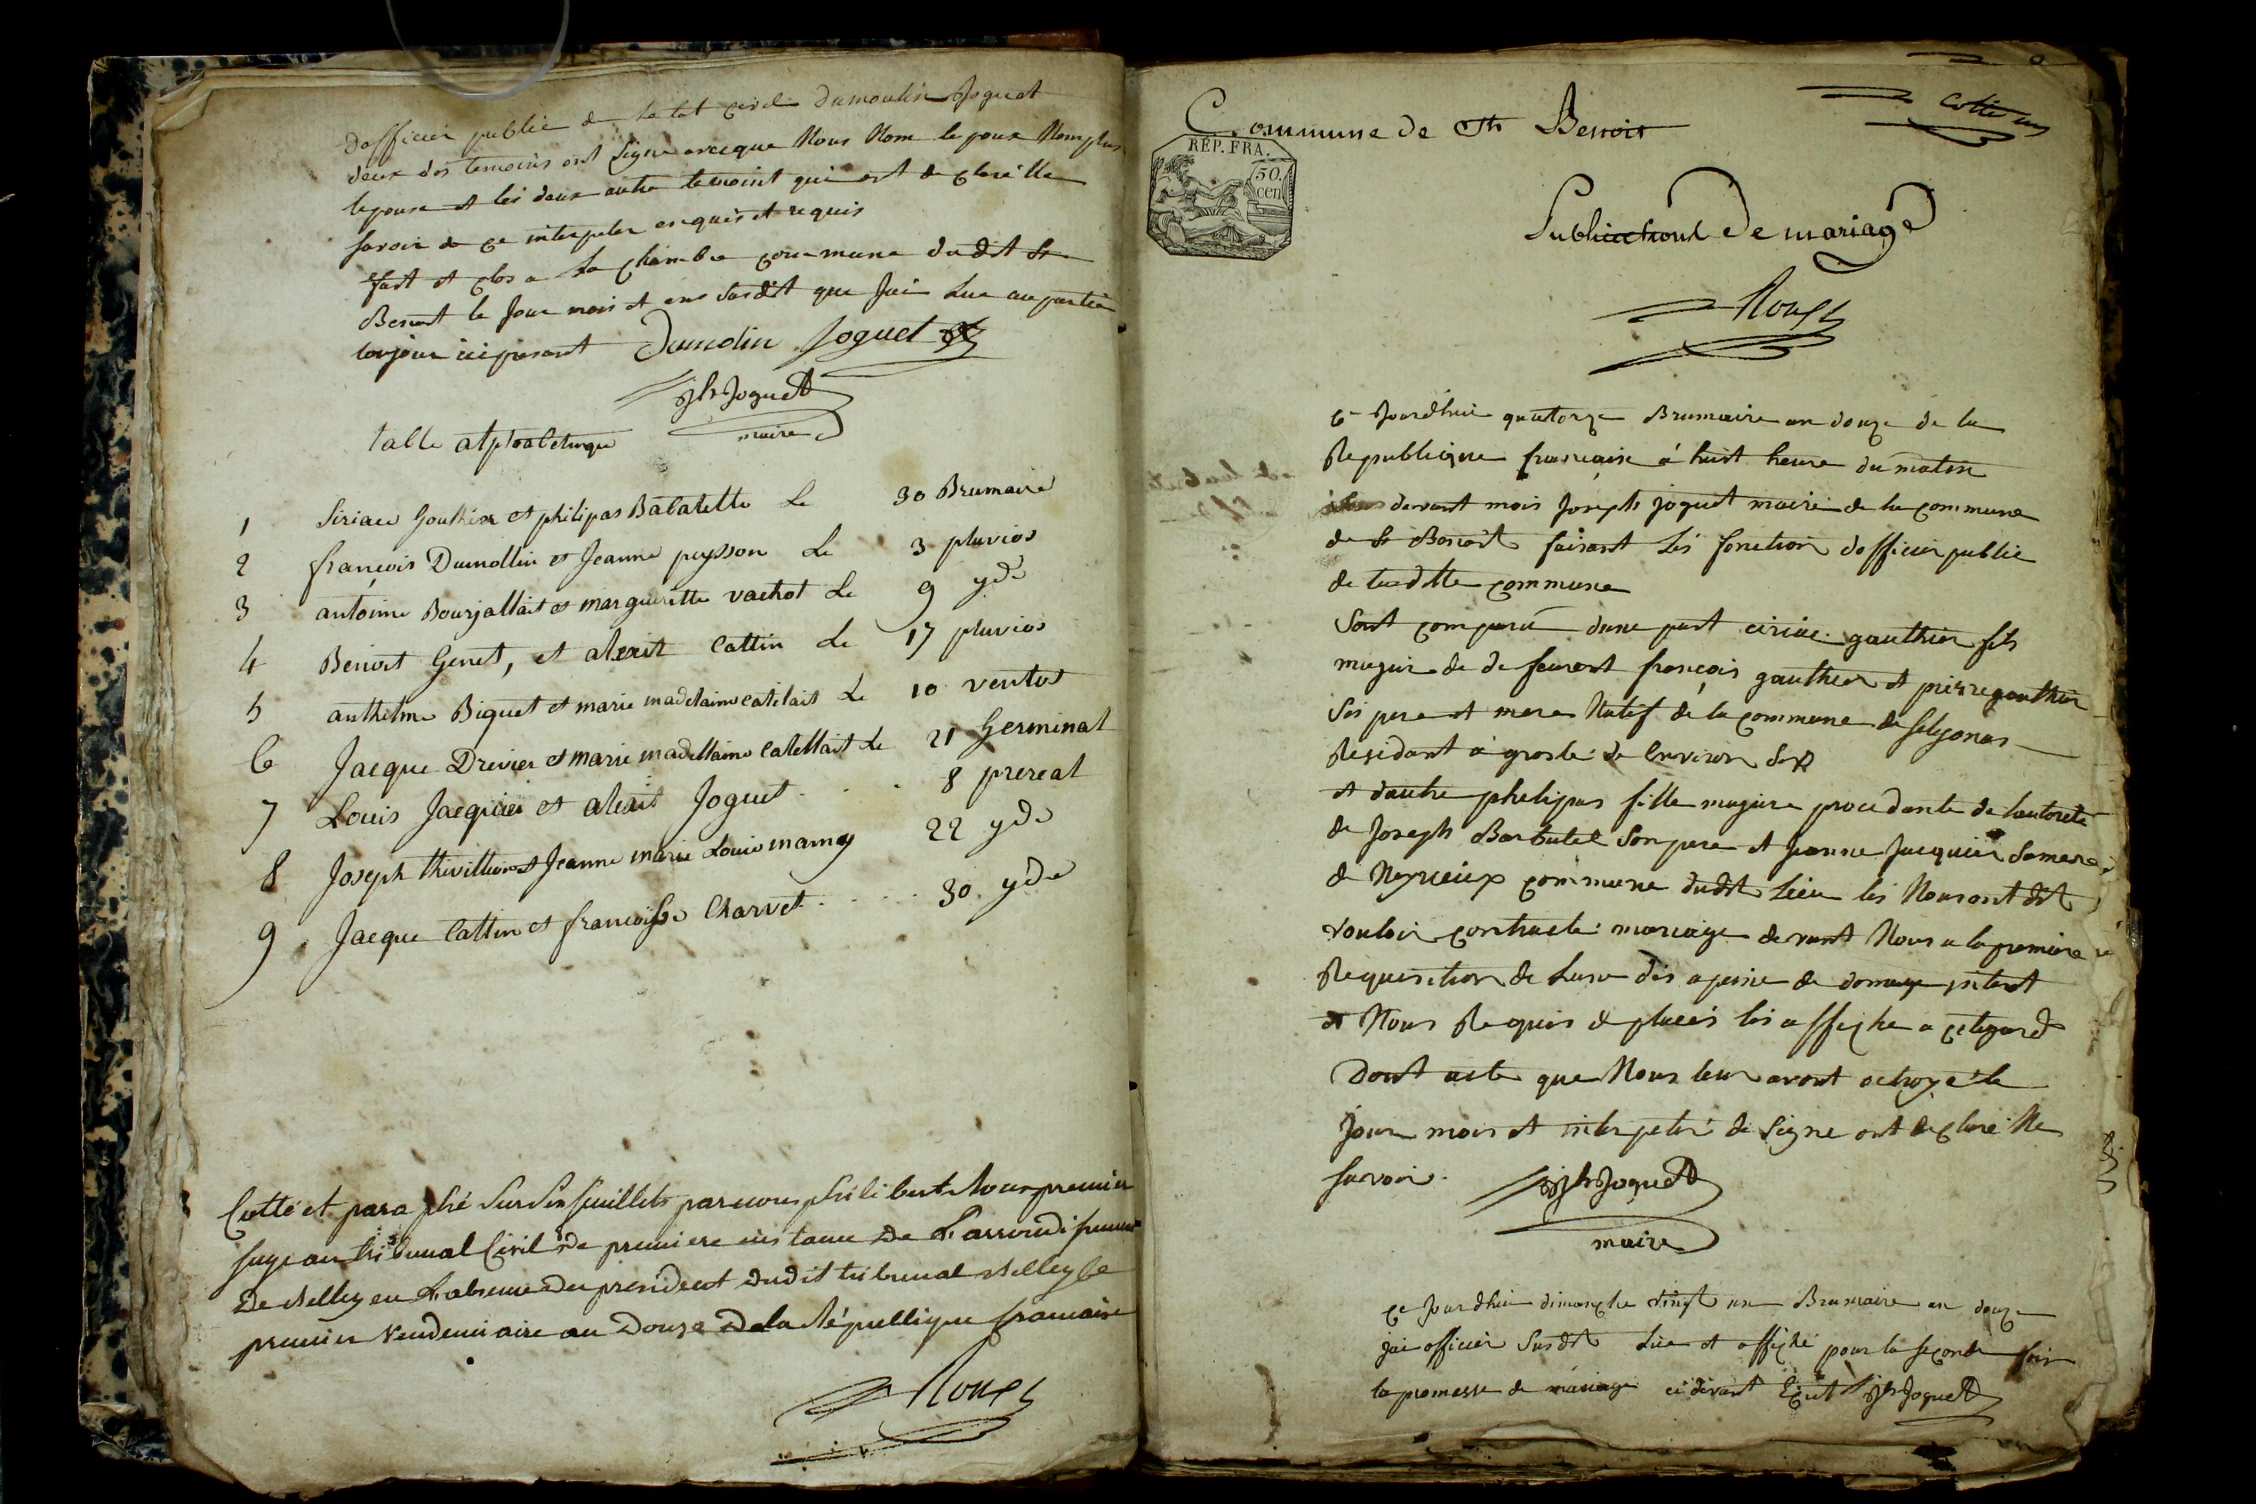 dofficier public de letat civil dumoulin Joguet
deux des temoins ont signe avecque Nous Nom lepoux Nomplus
lepouse et les deux autre temoint qui ont declaré Ne
savoir de ce interpeler enquis et requis
fait et clos a La chambre commune dudit St
Benoit le Jour mois et ans susdit que Jai Lue au partie
toujour ici present Dumolin Joguet
Jh Joguet
maire
table alphabetique
1 Siriace Gouthier et philipas Babatette Le 30 Brumaire
2 françois Dumollin et Jeanne peysson Le 3 pluvios
3 antoine Bourjallait et margueritte vachot Le 9 yde
4 Benoit Genet, et alexit Cattin Le 17 pluvios
5 anthelme Biguet et marie madelaine catilait Le 10 ventos
6 Jacque Drevier et marie madellaine Catellait Le 21 Germinal
7 Louis Jacquier et alexit Joguet 8 prereal
8 Joseph thivillion et Jeanne marie Louise mamy 22 yde
9 Jacque Cattin et françoisse Charvet 30 yde
Cotté et paraphé sur six feuillets par nous philibert Roux premier
Juge au tribunal Civil de premiere instance de L'arrondissement
De Belley en L'absence du president dudit tribunal Belley le
premier Vendemiaire an Douze De la République francaise
Roux
Cotte un
Commune de St Benoit
RÉP. FRA.
50.
cen
Publications de mariage
Roux
Ce Jourdhui quatorze Brumaire an douze de la
Republique française á huit heure du matin
devant mois Joseph joguet maire de la commune
de St Benoit faisant les fonction dofficier public
de laditte commune
Sont comparu dune part ciriac gauthier fils
majeur de defeunt françois gauthier et pierre gauthier
Ses pere et mere Natif de la commune de Selyonas
Residant á groslé de Environ
et dautre phelipas fille majeure procedante de lautorité
de Joseph Barbatel Son pere et Jeanne Jacquier Samere
de Neyrieux commune dudit Lieu les Nous ont dit
vouloir contracté mariage devant Nous a la premiere
Requisition de Lun des a peine de domage interet
et Nous Requis de placés les affiche a cet egard
Dont acte que Nous leur avont octroyé le
Jour mois et interpeler de Signe ont declaré Ne
Savoir.
Jh Joguet
maire
Ce Jourdhui dimanche vingt un Brumaire an douze
jai officier Susdit Lue et affiché pour la segonde fois
la promesse de mariage ci devant Ecrit Jh Joguet